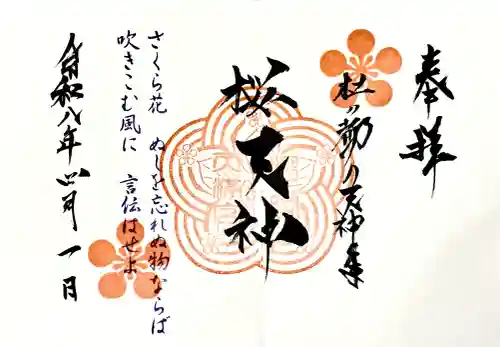 奉拝
杜ヶ動ノ天神集
桜天神
さくら花 ぬしを忘れぬ物ならば
吹きこむ風に 言伝はせよ
令和八年 四月 一日